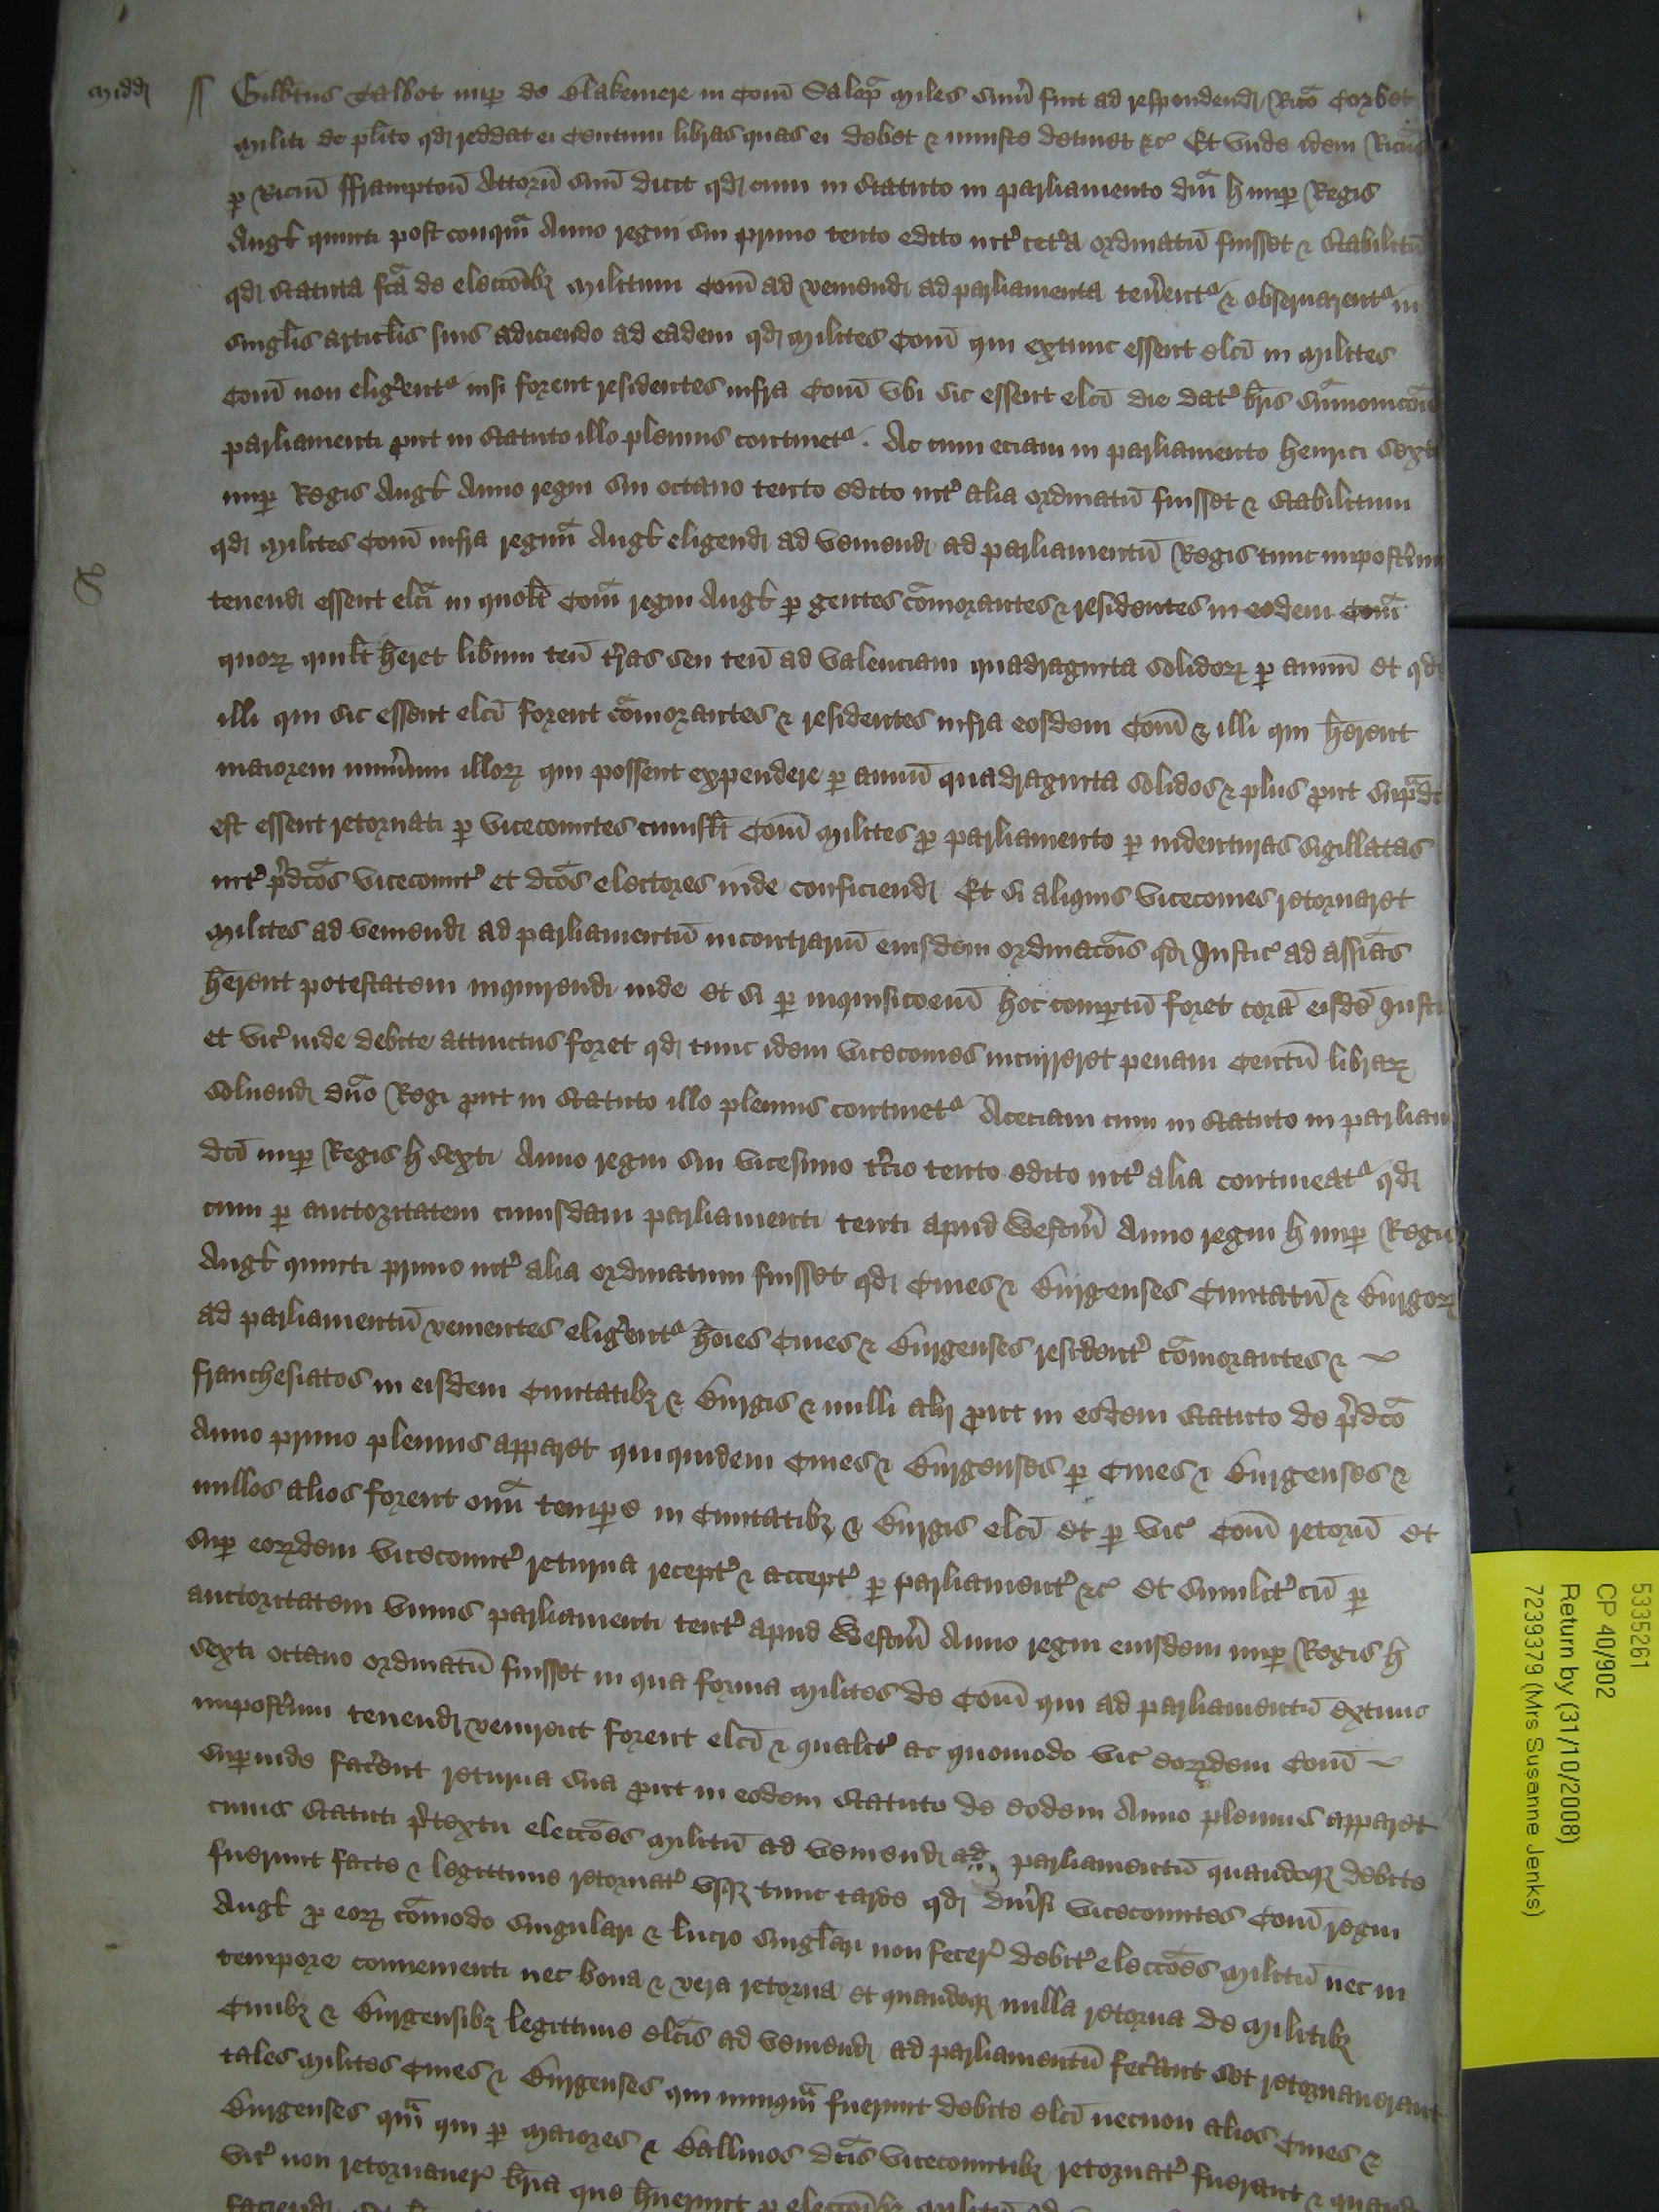 Midd
Gilbtus Talbot nup de Blakemere in Com Salop Miles Sum fuit ad respondend Rico Corbet
militi de plito qd reddat ei Centum libras quas ei debet & iniuste detinet &c Et unde idem Ricus
p Ricm fframpton Attorn suu dicit qd cum in Statuto in parliamento dni H nup Regis
Angl quinti post conqm Anno regni sui primo tento edito int cetera ordinatu fuisset & Stabilitu
qd Statuta fca de eleccoibz Militum Com ad veniend ad parliamenta tenerent & observarent in
singlis articlis suis adiciendo ad eadem qd Milites Com qui extunc essent elci in Milites
Com non eligerent nisi forent residentes infra Com ubi sic essent elci die dat bris Summonicois
parliamenti put in Statuto illo plenius continet . Ac cum eciam in parliamento henrici Sexti
nup Regis Angl Anno regni sui octavo tento edito int alia ordinatu fuisset & Stabilitum
qd Milites Com infra regnu Angl eligend ad veniend ad parliamentu Regis tunc impostum
tenend essent elci in quolt Com regni Angl p gentes comorantes & residentes in eodem Com
quorz quilt heret libum ten tras seu ten ad valenciam quadraginta Solidorz p annu et qd
illi qui sic essent elci forent comorantes & residentes infra eosdem Com & illi qui herent
maiorem numum illorz qui possent expendere p annu quadraginta Solidos & plus put supdc
est essent retornati p vicecomites cuiuslt Com Milites p parliamento p indenturas sigillatas
int pdcos vicecomit et dcos electores inde conficiend Et si aliquis vicecomes retornaret
Milites ad veniend ad parliamentu incontrariu eiusdem ordinacois qd Justic ad assias
herent potestatem inquirend inde et si p inquisicoem hoc comptu foret cora eisde Justic
et vic inde debite attinctus foret qd tunc idem vicecomes incurreret penam Centu librarz
Solvend dno Regi put in Statuto illo plenius continet Aceciam cum in Statuto in parliam
dci nup Regis H Sexti Anno regni sui vicesimo tcio tento edito int alia contineat qd
cum p auctoritatem cuiusdam parliamenti tenti apud Westm Anno regni H nup Regis
Angl quinti primo int alia ordinatum fuisset qd Cives & Burgenses Civitatu & Burgorz
ad parliamentu venientes eligerent hoies Cives & Burgenses resident comorantes &
franchesiatos in eisdem Civitatibz & Burgis & nulli alij put in eodem Statuto de pdco
Anno primo plenius apparet qui quidem Cives & Burgenses p Cives & Burgenses &
nullos alios forent omi tempe in Civitatibz & Burgis elci et p vic Com retorn et
sup eorzdem vicecomit returna recept & accept p parliament &c et similit cu p
auctoritatem unius parliamenti tent apud Westm Anno regni eiusdem nup Regis H
Sexti octavo ordinatu fuisset in qua forma Milites de Com qui ad parliamentu extunc
impostum tenend venirent forent elci & qualit ac quomodo vic eorzdem Com
supinde facerent returna sua put in eodem Statuto de eodem Anno plenius apparet
cuius Statuti ptextu elecoes Militu ad veniend ad parliamentu quandoqz debite
fuerunt facte & legittime retornat usqz tunc tarde qd divsi vicecomites Com regni
Angl p eorz comodo singulari & lucro singlari non fecer debit elecoes Militu nec in
tempore convenienti nec bona & vera retorna et quandoqz nulla retorna de Militibz
Civibz & Burgensibz legittime elcis ad veniend ad parliamentu fecerant set retornaverant
tales Milites Cives & Burgenses qui nunqm fuerunt debite elci necnon alios Cives &
Burgenses qm qui p Maiores & Ballivos dcis vicecomitibz retornat fuerant & quand
vic non retornaver bria que huerunt p eleccoibz Militu ad
5335261
CP 40/902
Return by (31/10/2008)
7239379 (Mrs Susanne Jenks)